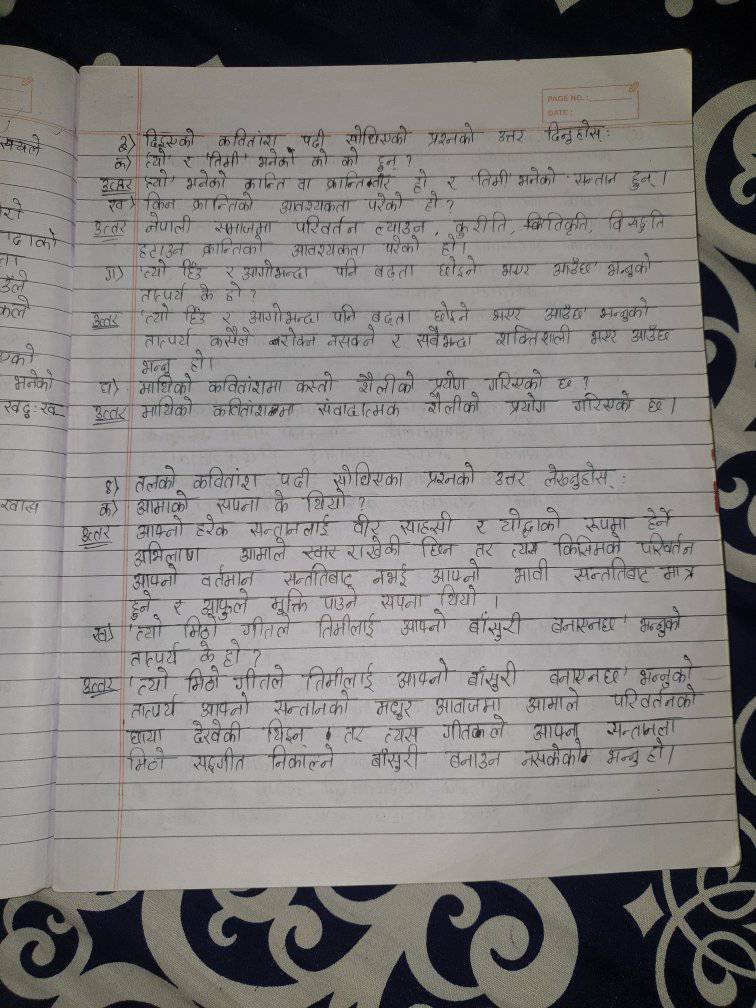 सक्यले
PAGE NO.:
DATE:
३) दिइएको कवितांश पढी सोधिएको प्रश्नको उत्तर दिनुहोस् :
क) 'त्यो' र 'तिमी' भनेको को को हुन् ?
उत्तर 'त्यो' भनेको क्रान्ति वा क्रान्तिवीर हो र 'तिमी' भनेको सन्तान हुन् ।
ख) किन क्रान्तिको आवश्यकता परेको हो ?
उत्तर नेपाली समाजमा परिवर्तन ल्याउन, कुरीति, विकृति, विसङ्गति
हटाउन क्रान्तिको आवश्यकता परेको हो ।
ग) 'त्यो हिउँ र आगोभन्दा पनि बढ्ता छोइने भएर आउँछ' भन्नुको
तात्पर्य के हो ?
उत्तर 'त्यो हिउँ र आगोभन्दा पनि बढ्ता छोइने भएर आउँछ' भन्नुको
तात्पर्य कसैले रोक्न नसक्ने र सबैभन्दा शक्तिशाली भएर आउँछ
भन्नु हो ।
घ) माथिको कवितांशमा कस्तो शैलीको प्रयोग गरिएको छ ?
उत्तर माथिको कवितांशमा संवादात्मक शैलीको प्रयोग गरिएको छ ।
भनेको
४) तलको कवितांश पढी सोधिएका प्रश्नको उत्तर लेख्नुहोस् :
क) आमाको सपना के थियो ?
उत्तर आफ्नो हरेक सन्तानलाई वीर साहसी र योद्धाको रूपमा हेर्ने
अभिलाषा आमाले राखेकी छिन् तर त्यस किसिमको परिवर्तन
आफ्नो वर्तमान सन्ततिबाट नभई आफ्नो भावी सन्ततिबाट मात्र
हुने र आफूले मुक्ति पाउने सपना थियो ।
ख) 'त्यो मिठो गीतले तिमीलाई आफ्नो बाँसुरी बनाएनछ' भन्नुको
तात्पर्य के हो ?
उत्तर 'त्यो मिठो गीतले तिमीलाई आफ्नो बाँसुरी बनाएनछ' भन्नुको
तात्पर्य आफ्नो सन्तानको मधुर आवाजमा आमाले परिवर्तनको
छाया देखेकी थिइन् । तर त्यस गीतकले आफ्न सन्तानला
मिठो सङ्गीत निकाल्ने बाँसुरी बनाउन नसकेको भन्नु हो ।